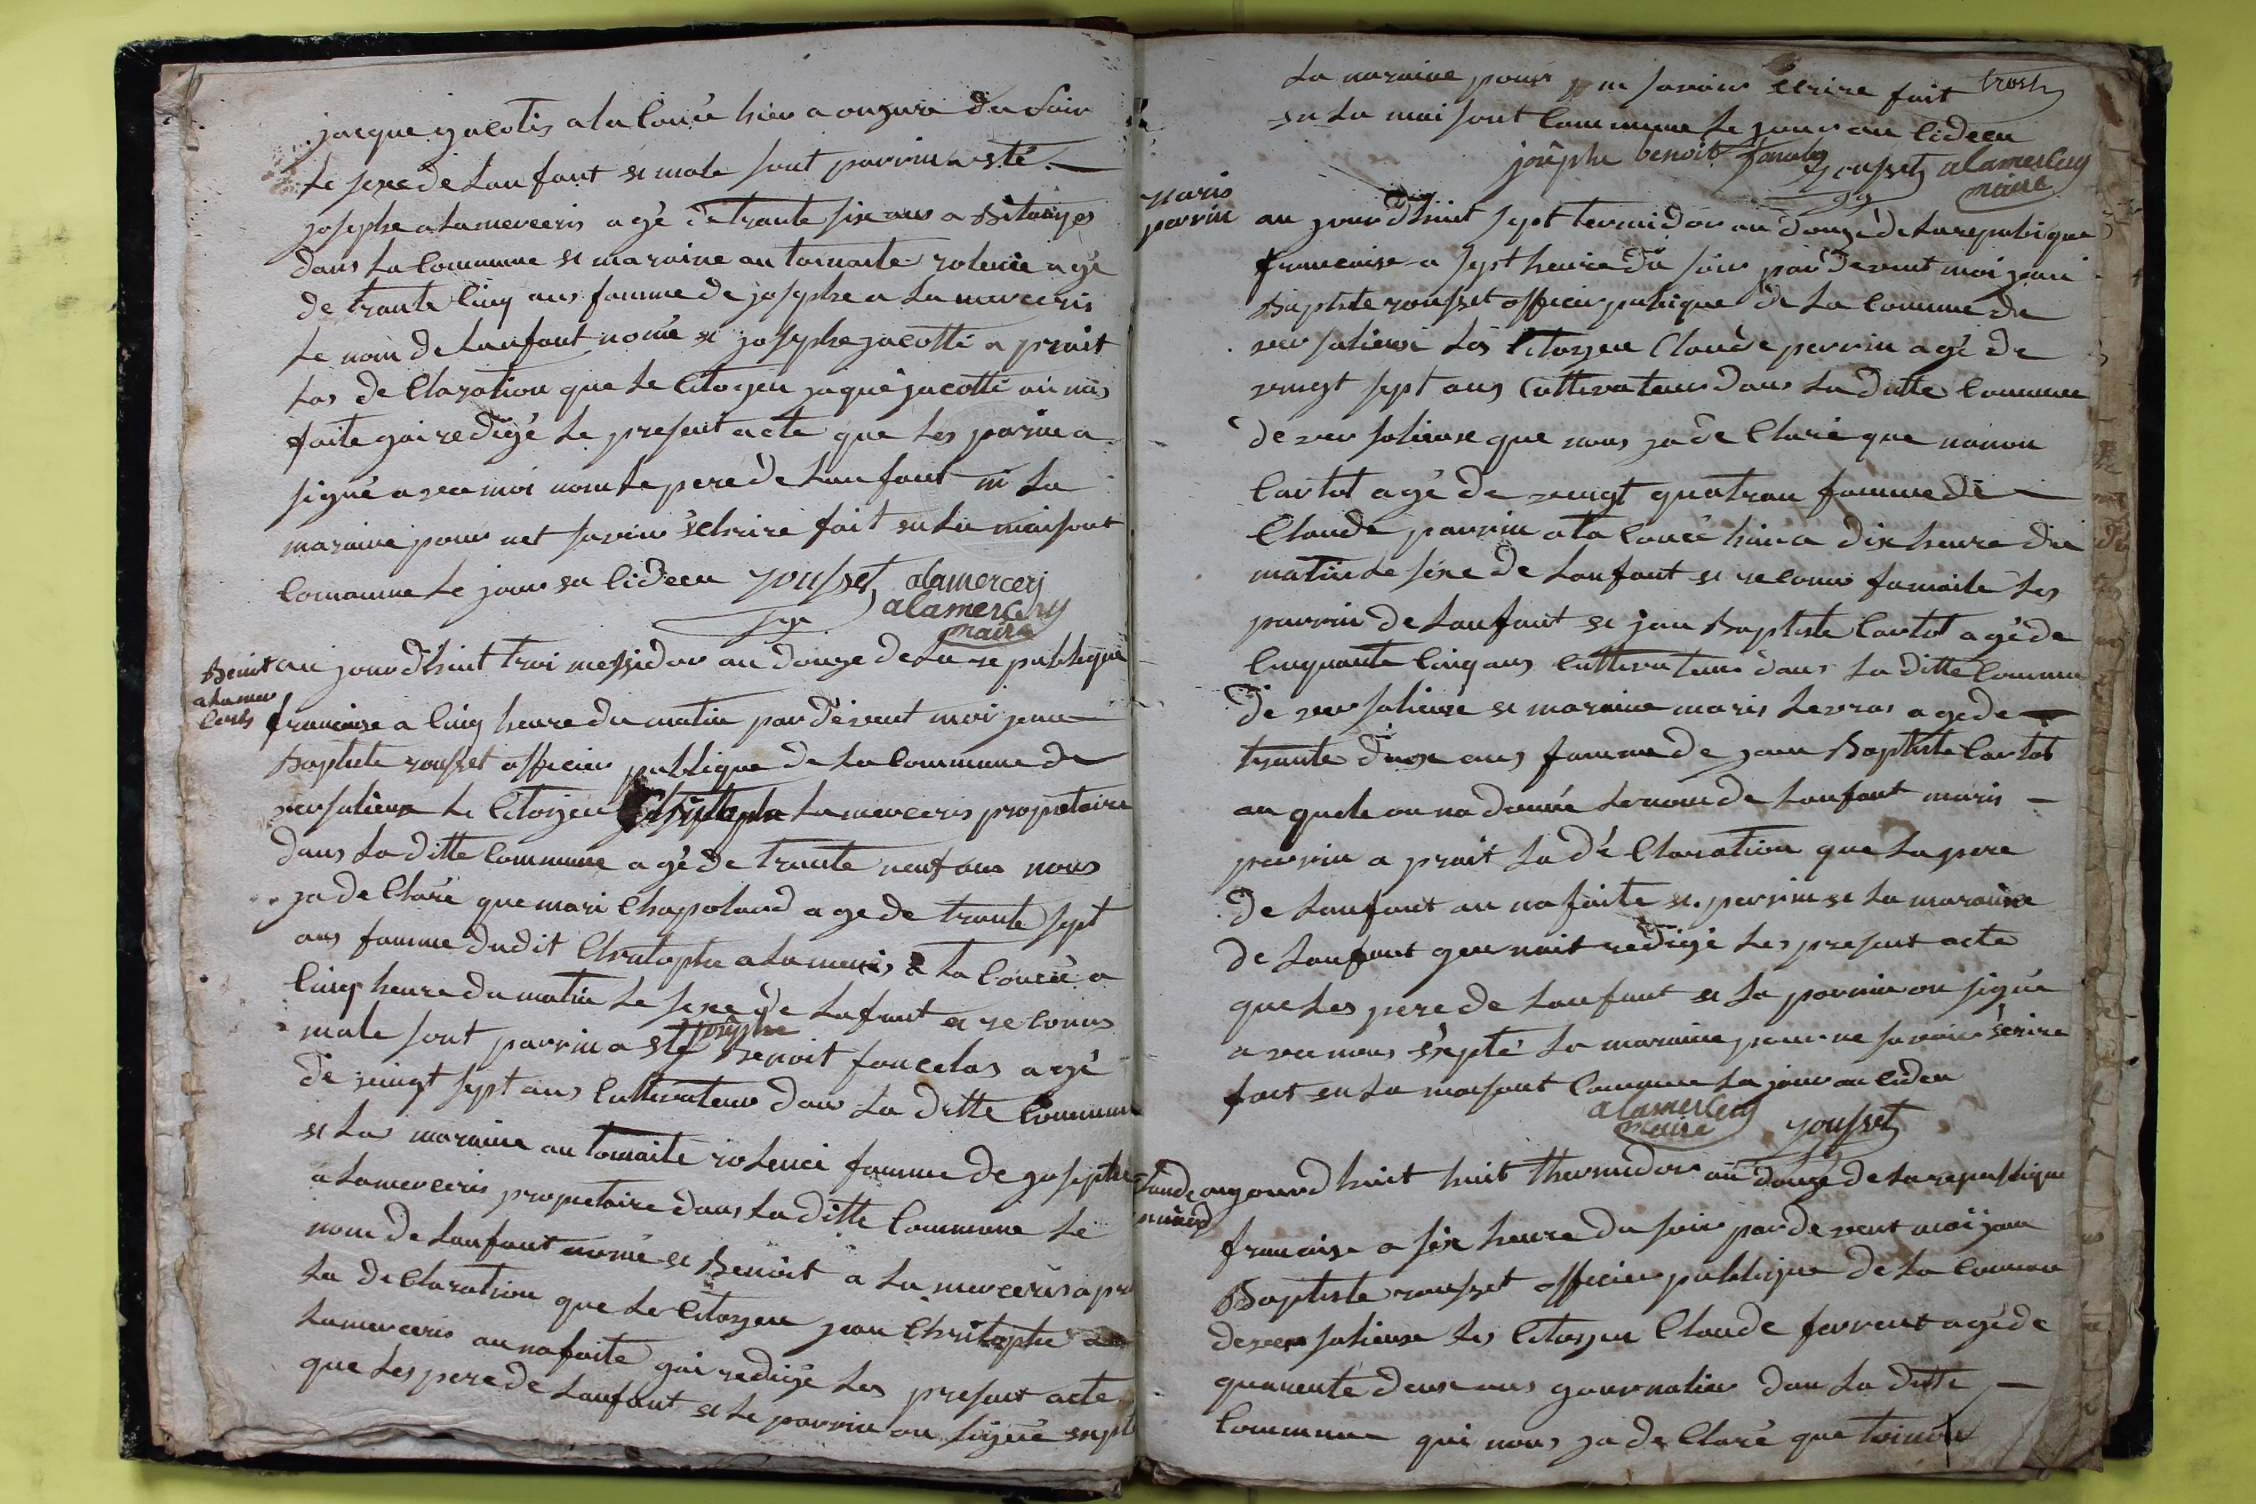 jacque jacotis a la Couée hier a onzura du soir
le sexe de Lanfant se male sont parrin a sté
josephe alamerceris agé de trante sixe ans a
dans la Commune se maraine antoinaite rolencie agé
de trante Cinq ans famme de josephe a lamerceris
Le nom de Lanfant nomé se josephe jacotti a prait
Las de Claration que le Citoyen jaque jacotti
faite jai redigé le present acte que les parin a
signé avec moi nom le pere de Lanfant ni La
maraine pour net savoir sechrire fait en La maisont
Comamune le jour en Cideçu rousset alamercery
alamercery
maire
Benit
alamer
Ceris
au jourdhuit troi messidor an douze de La republique
francaise a Cinq heure du matin par devent moi jean
Baptiste rousset officier publique de La Commune de
versalieux le Citoyen Christophe Lamerceris propietaire
dans La ditte Commune agé de trante neuf ans nous
ja de Claré que mari Chapoland age de trante sept
ans famme dudit Chratophe alamerceris a la Couée a
Cinq heure du matin le sexe de Lafant se reconus
male sont parrin a sté josephe Benoit fancelas agé
de vingt sept ans Cultivateur dans La ditte Commune
se La maraine antomaite rolenci famme de josephe
alamerceris propietaire dans La ditte Commune le
nom de Lanfant nomé se Benoit a La merceris a pr
La de Claration que Le Citoyen jean Christophe
Lamerceris an na faite jai redigé Les present acte
que Les pere de Lanfant se le parrin on signé septé
La maraine pour ne savoir ecrire fait
en La maisont Commune le jour an Cideçu
josephe benoit rousset alamercery
maire
Marie
perrin
au jourdhuit sept termidor an douze de La republique
francaise a sept heure du soir par devent moi jean
Baptiste rousset officier publique de La Commune de
versalieux Les Citoyen Claude perrin agé de
vingt sept ans Cultivateur dans La ditte Commune
de versalieuxe que nous ja de Claré que nanon
Cartot agé de vingt quatran famme de
Claude parrin a la Couée hier a dix heure du
matin le sexe de Lanfant se reconus famaile Les
parrin de Lanfant se jan Baptiste Cartot agé de
Cinquante Cinq ans Cultivateur dans La ditte Commune
de versalieuxe se maraine maris Levras agé de
trante deux ans famme de jean Baptiste Cartot
au quele on na donnée le nom de Lanfant maris
perrin a prait La dé Claration que La pere
de Lanfant an na faite se parrin se La maraine
de Lanfant jen nait redigé Les present acte
que Les pere de Lanfant se La parrin on signé
avec nous septé La maraine pour ne savoir serire
fait en La maisont Commune La jour an Cideçu
alamercery
maire rousset
Claude
aujourdhuit huit thermidor an douze de La republique
francaise a sixe heure du soir par devent moi jean
Baptiste rousset officier publique de La Commune
de versalieuxe Les Citoyen Claude ferrent agé de
quarente deux ans journalier dan La ditte
Commune qui nous ja de Claré que